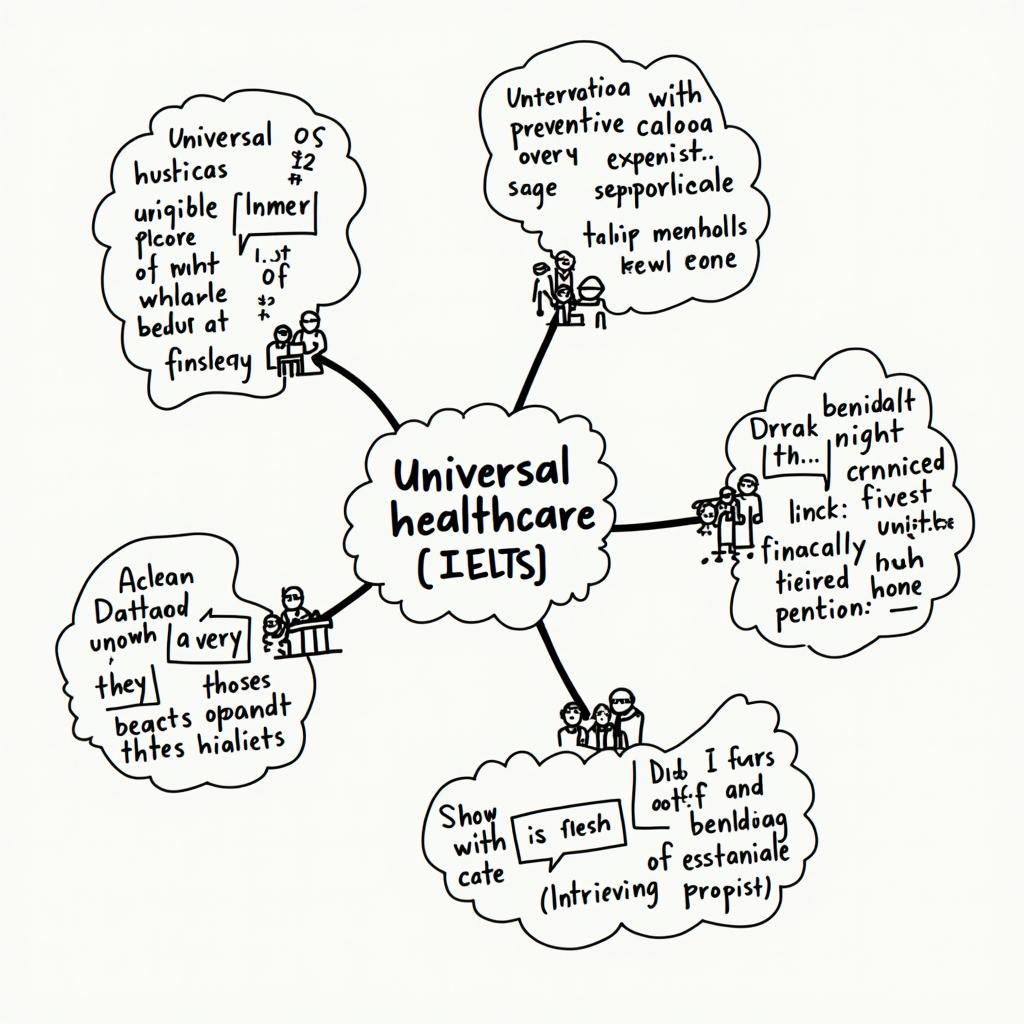 Universal OS
husticas $2
#
urigible [Inmer]
plcore
of wht 1..st
whlarle of
bedur at
finslegy
Untervatioa with
preventive calooa
overy expenist..
sage sepiporlicale
talip menholls
kewl eone
Universal
healthcare
(IELTS]
Drrak benidalt
th... night
crnniced
linck: fivest
finacally
tieired huh
pention: — hone
Aclean
Dattaod
unowh a very
they thoses
beacts opandt
thtes hialiets
Show
with is flesh
cate
Did I furs
and
benldiag
of esstaniale
(Intrieving propist)